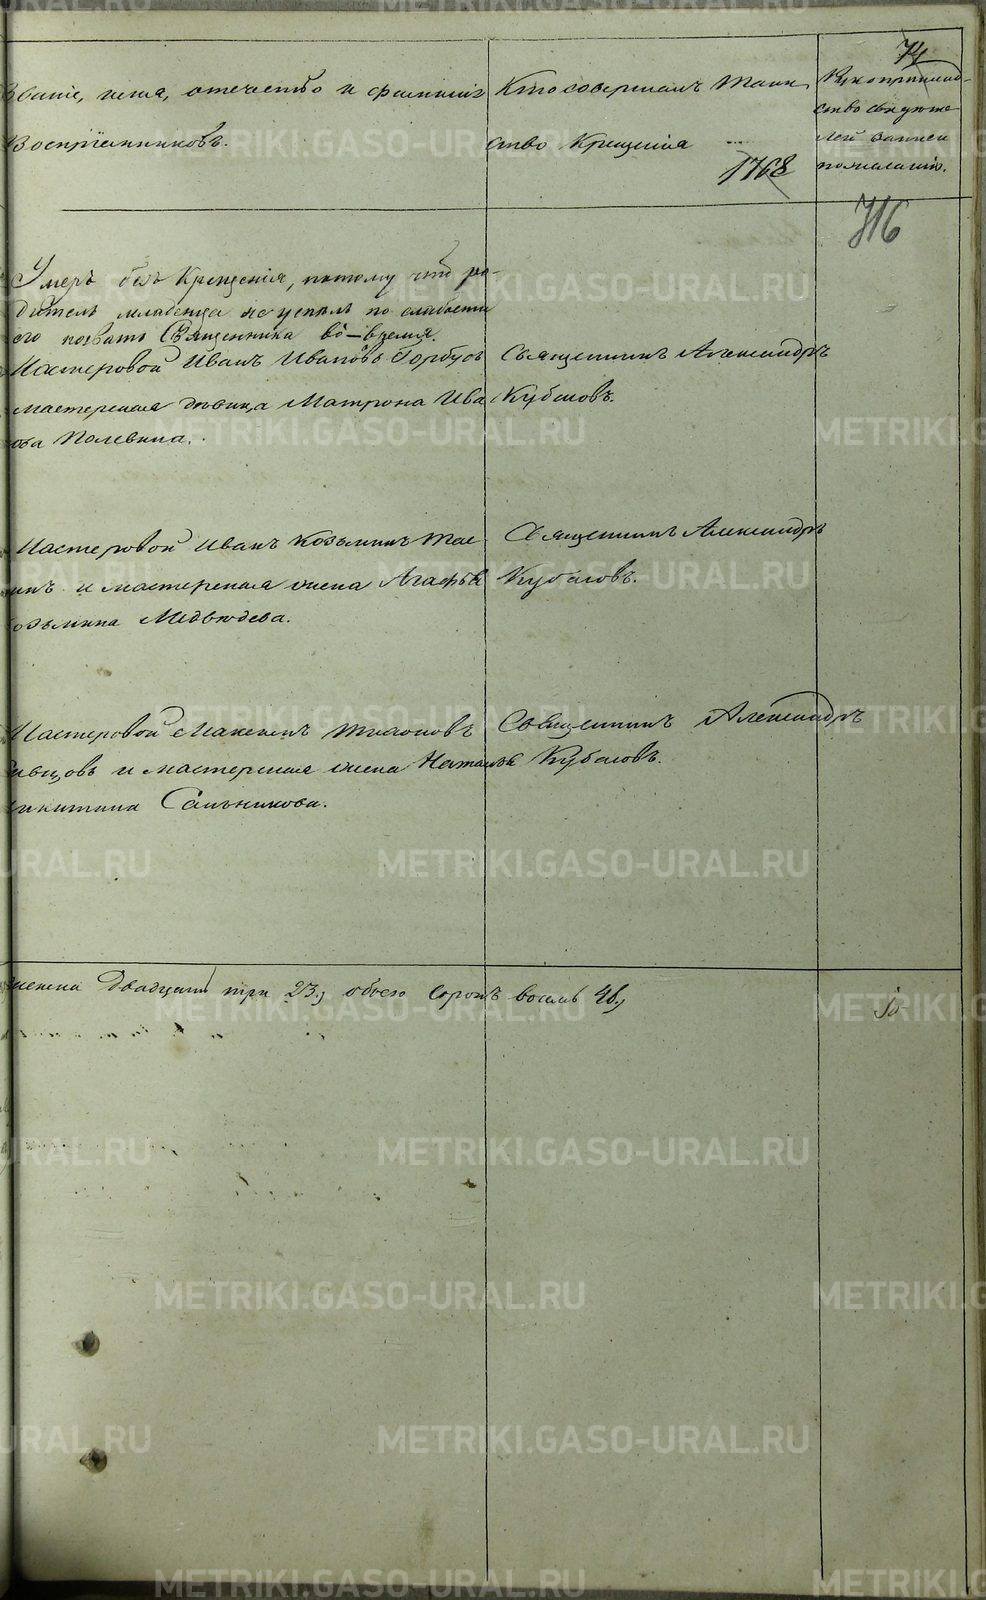 74
Званіе, имя, отечество и фамилія
Воспріемниковъ.
Кто совершалъ Таин
ство Крещенія
1768
Рукоприклад-
ство свидѣте
лей записи
по желанію.
716
Умеръ безъ Крещенія, потому что ро-
дитель младенца не успѣлъ по слабости
его позвать Священника во-время.
Мастеровой Иванъ Ивановъ Горбуновъ
мастерская дѣвица Матрона Ива
нова Полевина.
Священникъ Александръ
Кубасовъ.
Мастеровой Иванъ Козьминъ
и мастерская жена Агафья
Козьмина Медвѣдева.
Священникъ Александръ
Кубасовъ.
Мастеровой Максимъ
и мастерская жена Наталья
Никитина Сальникова.
Священникъ Александръ
Кубасовъ.
женска двадцать три 23, обоего сорокъ восемь 48,
METRIKI.GASO-URAL.RU